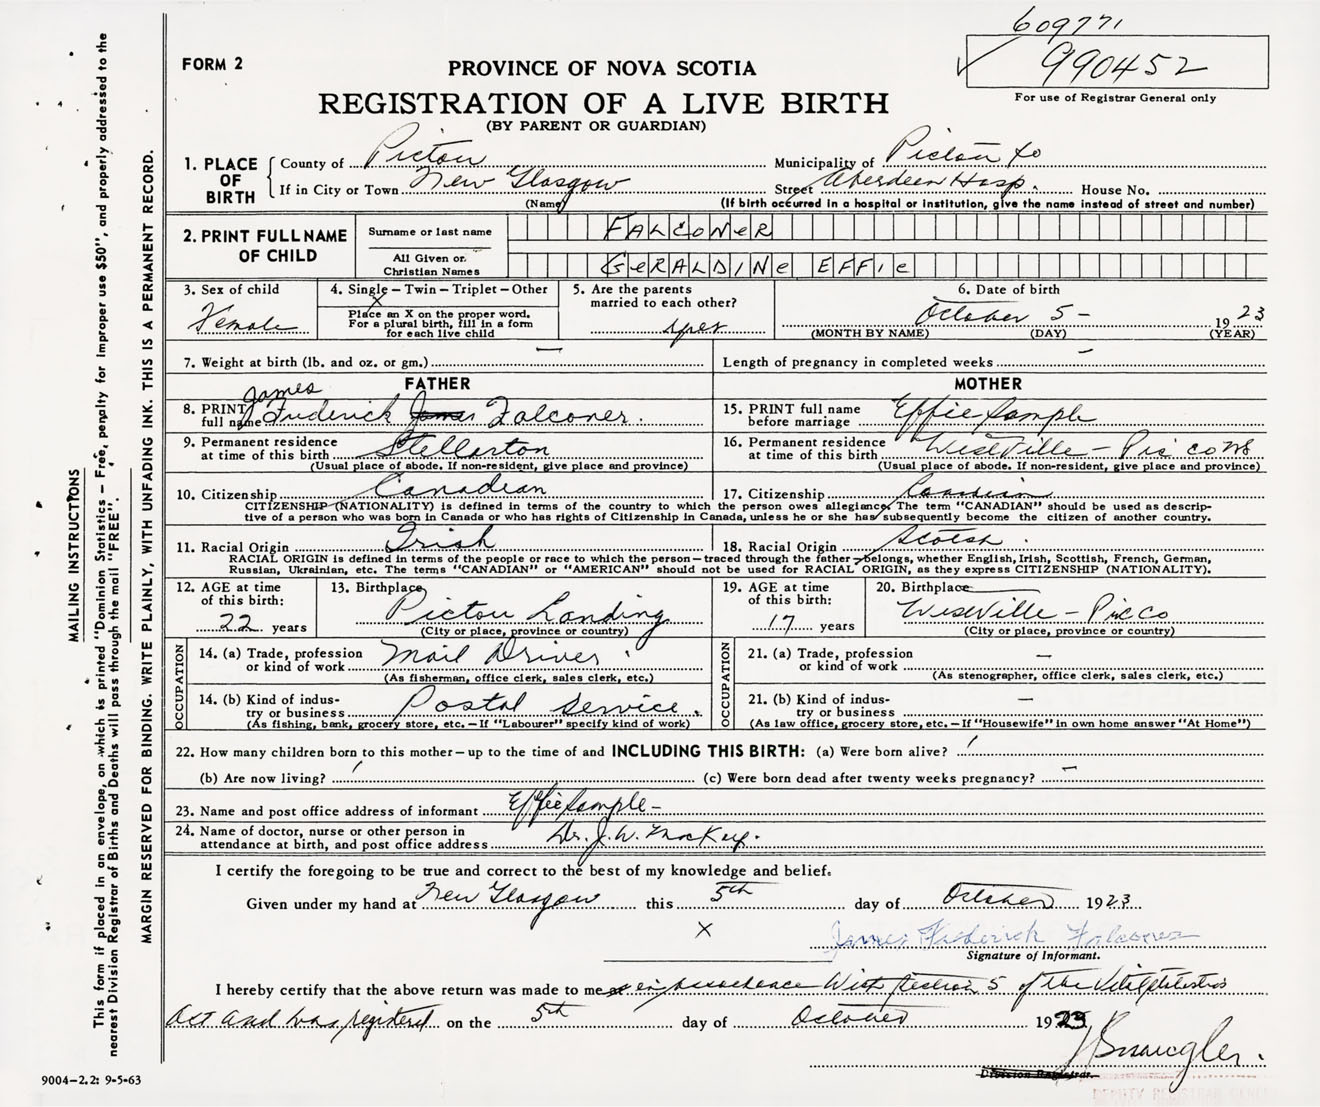 609771
FORM 2
PROVINCE OF NOVA SCOTIA
990452
For use of Registrar General only
REGISTRATION OF A LIVE BIRTH
(BY PARENT OR GUARDIAN)
1. PLACE OF BIRTH
County of Pictou Municipality of Pictou Co
If in City or Town New Glasgow Street Aberdeen Hosp. House No.
(Name) (If birth occurred in a hospital or institution, give the name instead of street and number)
2. PRINT FULL NAME OF CHILD
Surname or last name FALCONER
All Given or Christian Names GERALDINE EFFIE
3. Sex of child Female
4. Single – Twin – Triplet – Other
X
Place an X on the proper word.
For a plural birth, fill in a form
for each live child
5. Are the parents married to each other? yes
6. Date of birth
October 5 – 1923
(MONTH BY NAME) (DAY) (YEAR)
7. Weight at birth (lb. and oz. or gm.) – Length of pregnancy in completed weeks –
FATHER
MOTHER
James
8. PRINT full name Frederick James Falconer.
15. PRINT full name before marriage Effie Sample
9. Permanent residence at time of this birth Stellarton
(Usual place of abode. If non-resident, give place and province)
16. Permanent residence at time of this birth Wiseville – Pic Co NS
(Usual place of abode. If non-resident, give place and province)
10. Citizenship Canadian
17. Citizenship Canadian
CITIZENSHIP (NATIONALITY) is defined in terms of the country to which the person owes allegiance. The term "CANADIAN" should be used as descrip-
tive of a person who was born in Canada or who has rights of Citizenship in Canada, unless he or she has subsequently become the citizen of another country.
11. Racial Origin Irish
18. Racial Origin Scotsh.
RACIAL ORIGIN is defined in terms of the people or race to which the person – traced through the father – belongs, whether English, Irish, Scottish, French, German,
Russian, Ukrainian, etc. The terms "CANADIAN" or "AMERICAN" should not be used for RACIAL ORIGIN, as they express CITIZENSHIP (NATIONALITY).
12. AGE at time of this birth: 22 years
13. Birthplace Pictou Landing
(City or place, province or country)
19. AGE at time of this birth: 17 years
20. Birthplace Wiseville – Pic Co
(City or place, province or country)
OCCUPATION
14. (a) Trade, profession or kind of work Mail Driver
(As fisherman, office clerk, sales clerk, etc.)
14. (b) Kind of indus-
try or business Postal Service.
(As fishing, bank, grocery store, etc. – If "Labourer" specify kind of work)
OCCUPATION
21. (a) Trade, profession or kind of work –
(As stenographer, office clerk, sales clerk, etc.)
21. (b) Kind of indus-
try or business –
(As law office, grocery store, etc. – If "Housewife" in own home answer "At Home")
22. How many children born to this mother – up to the time of and INCLUDING THIS BIRTH: (a) Were born alive? 1
(b) Are now living? 1 (c) Were born dead after twenty weeks pregnancy? –
23. Name and post office address of informant Effie Sample –
24. Name of doctor, nurse or other person in
attendance at birth, and post office address Dr. J. W. MacKay.
I certify the foregoing to be true and correct to the best of my knowledge and belief.
Given under my hand at New Glasgow this 5th day of October 1923
X James Frederick Falconer
Signature of Informant.
I hereby certify that the above return was made to me in accordance With Section 5 of the Vital Statistics
Act and was registered on the 5th day of October 1923
Division Registrar.
DEPUTY REGISTRAR GENERAL
9004-2.2: 9-5-63
MAILING INSTRUCTIONS
This form if placed in an envelope, on which is printed "Dominion Statistics – Free, penalty for improper use $50", and properly addressed to the
nearest Division Registrar of Births and Deaths will pass through the mail "FREE".
MARGIN RESERVED FOR BINDING. WRITE PLAINLY, WITH UNFADING INK. THIS IS A PERMANENT RECORD.